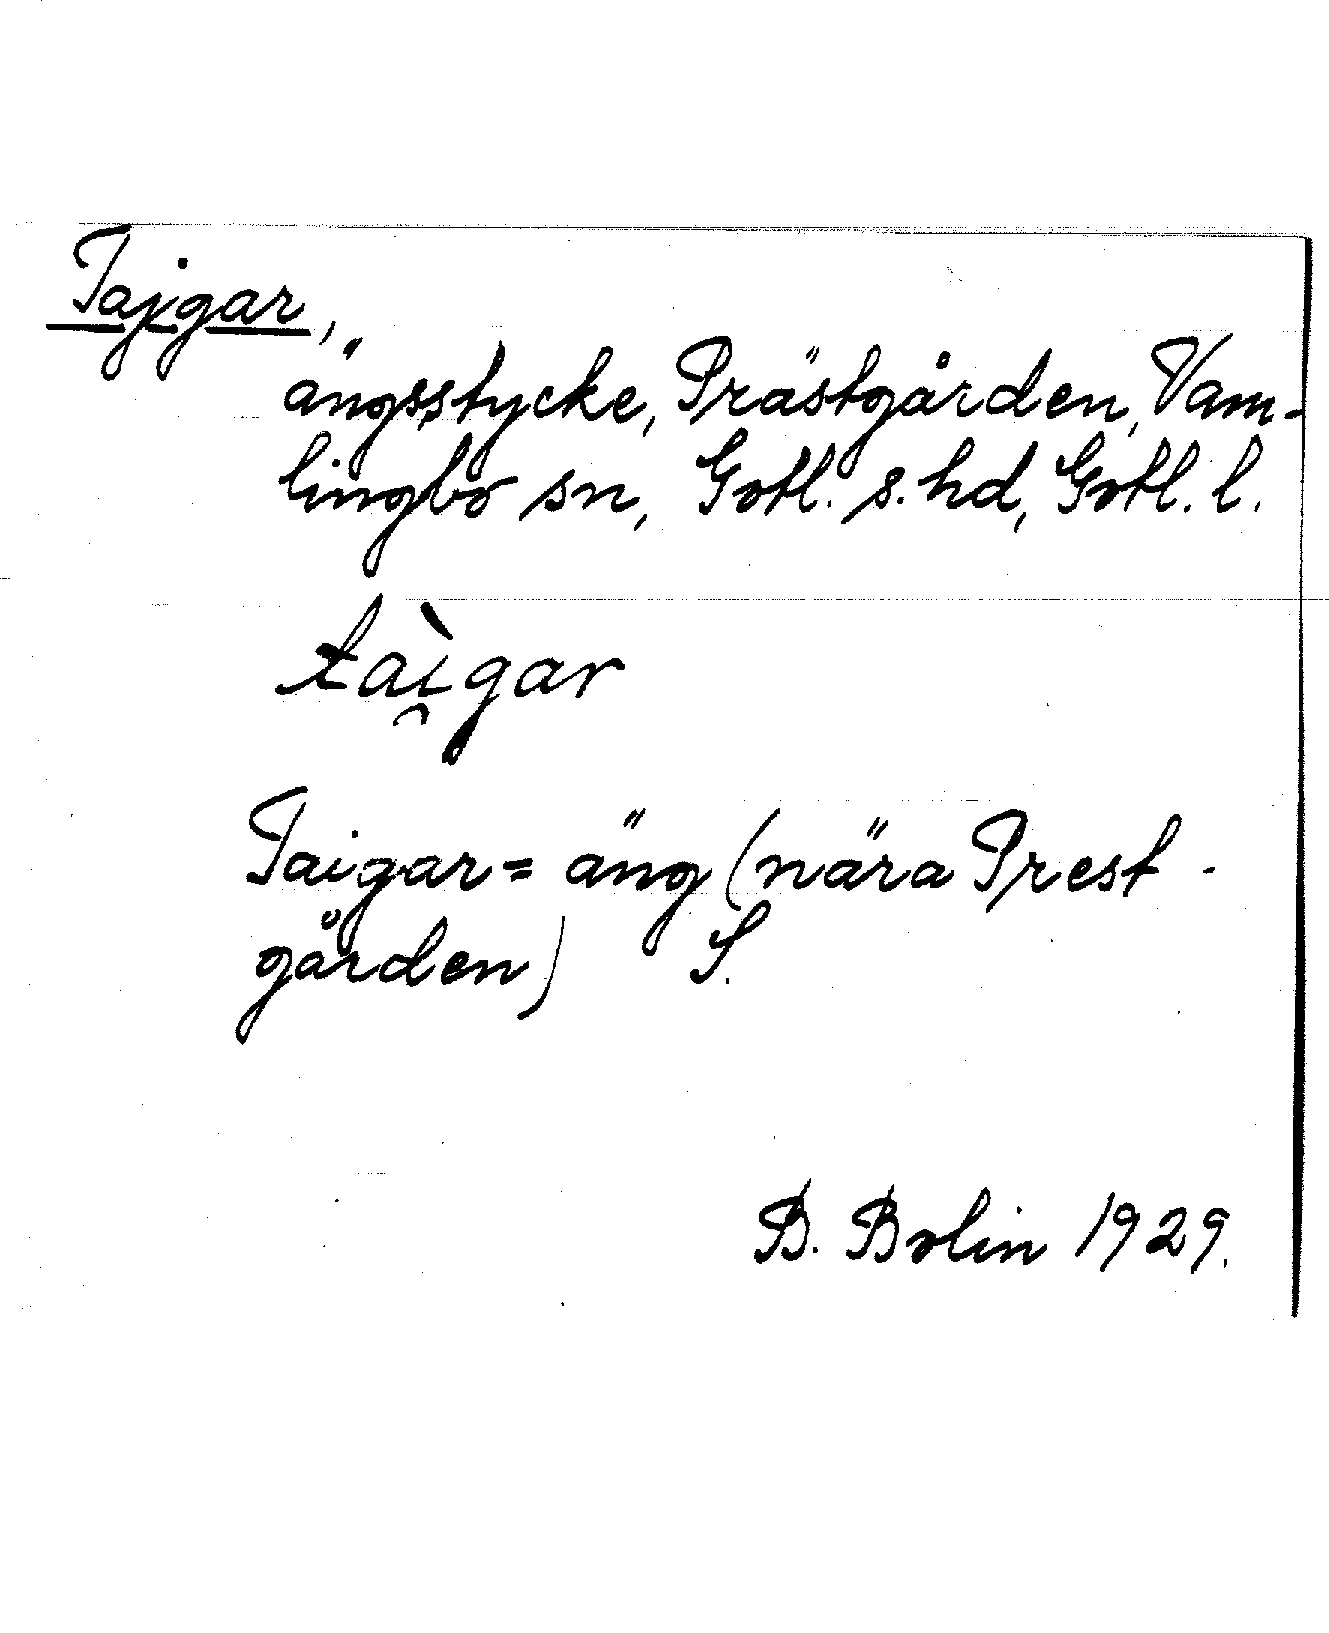 Tajgar,
ängsstycke, Prästgården, Vam-
lingbo sn, Gotl. s. hd, Gotl. l.
tài̯gar
Taigar = äng (nära Prest-
gården) S.
B. Bolin 1929.